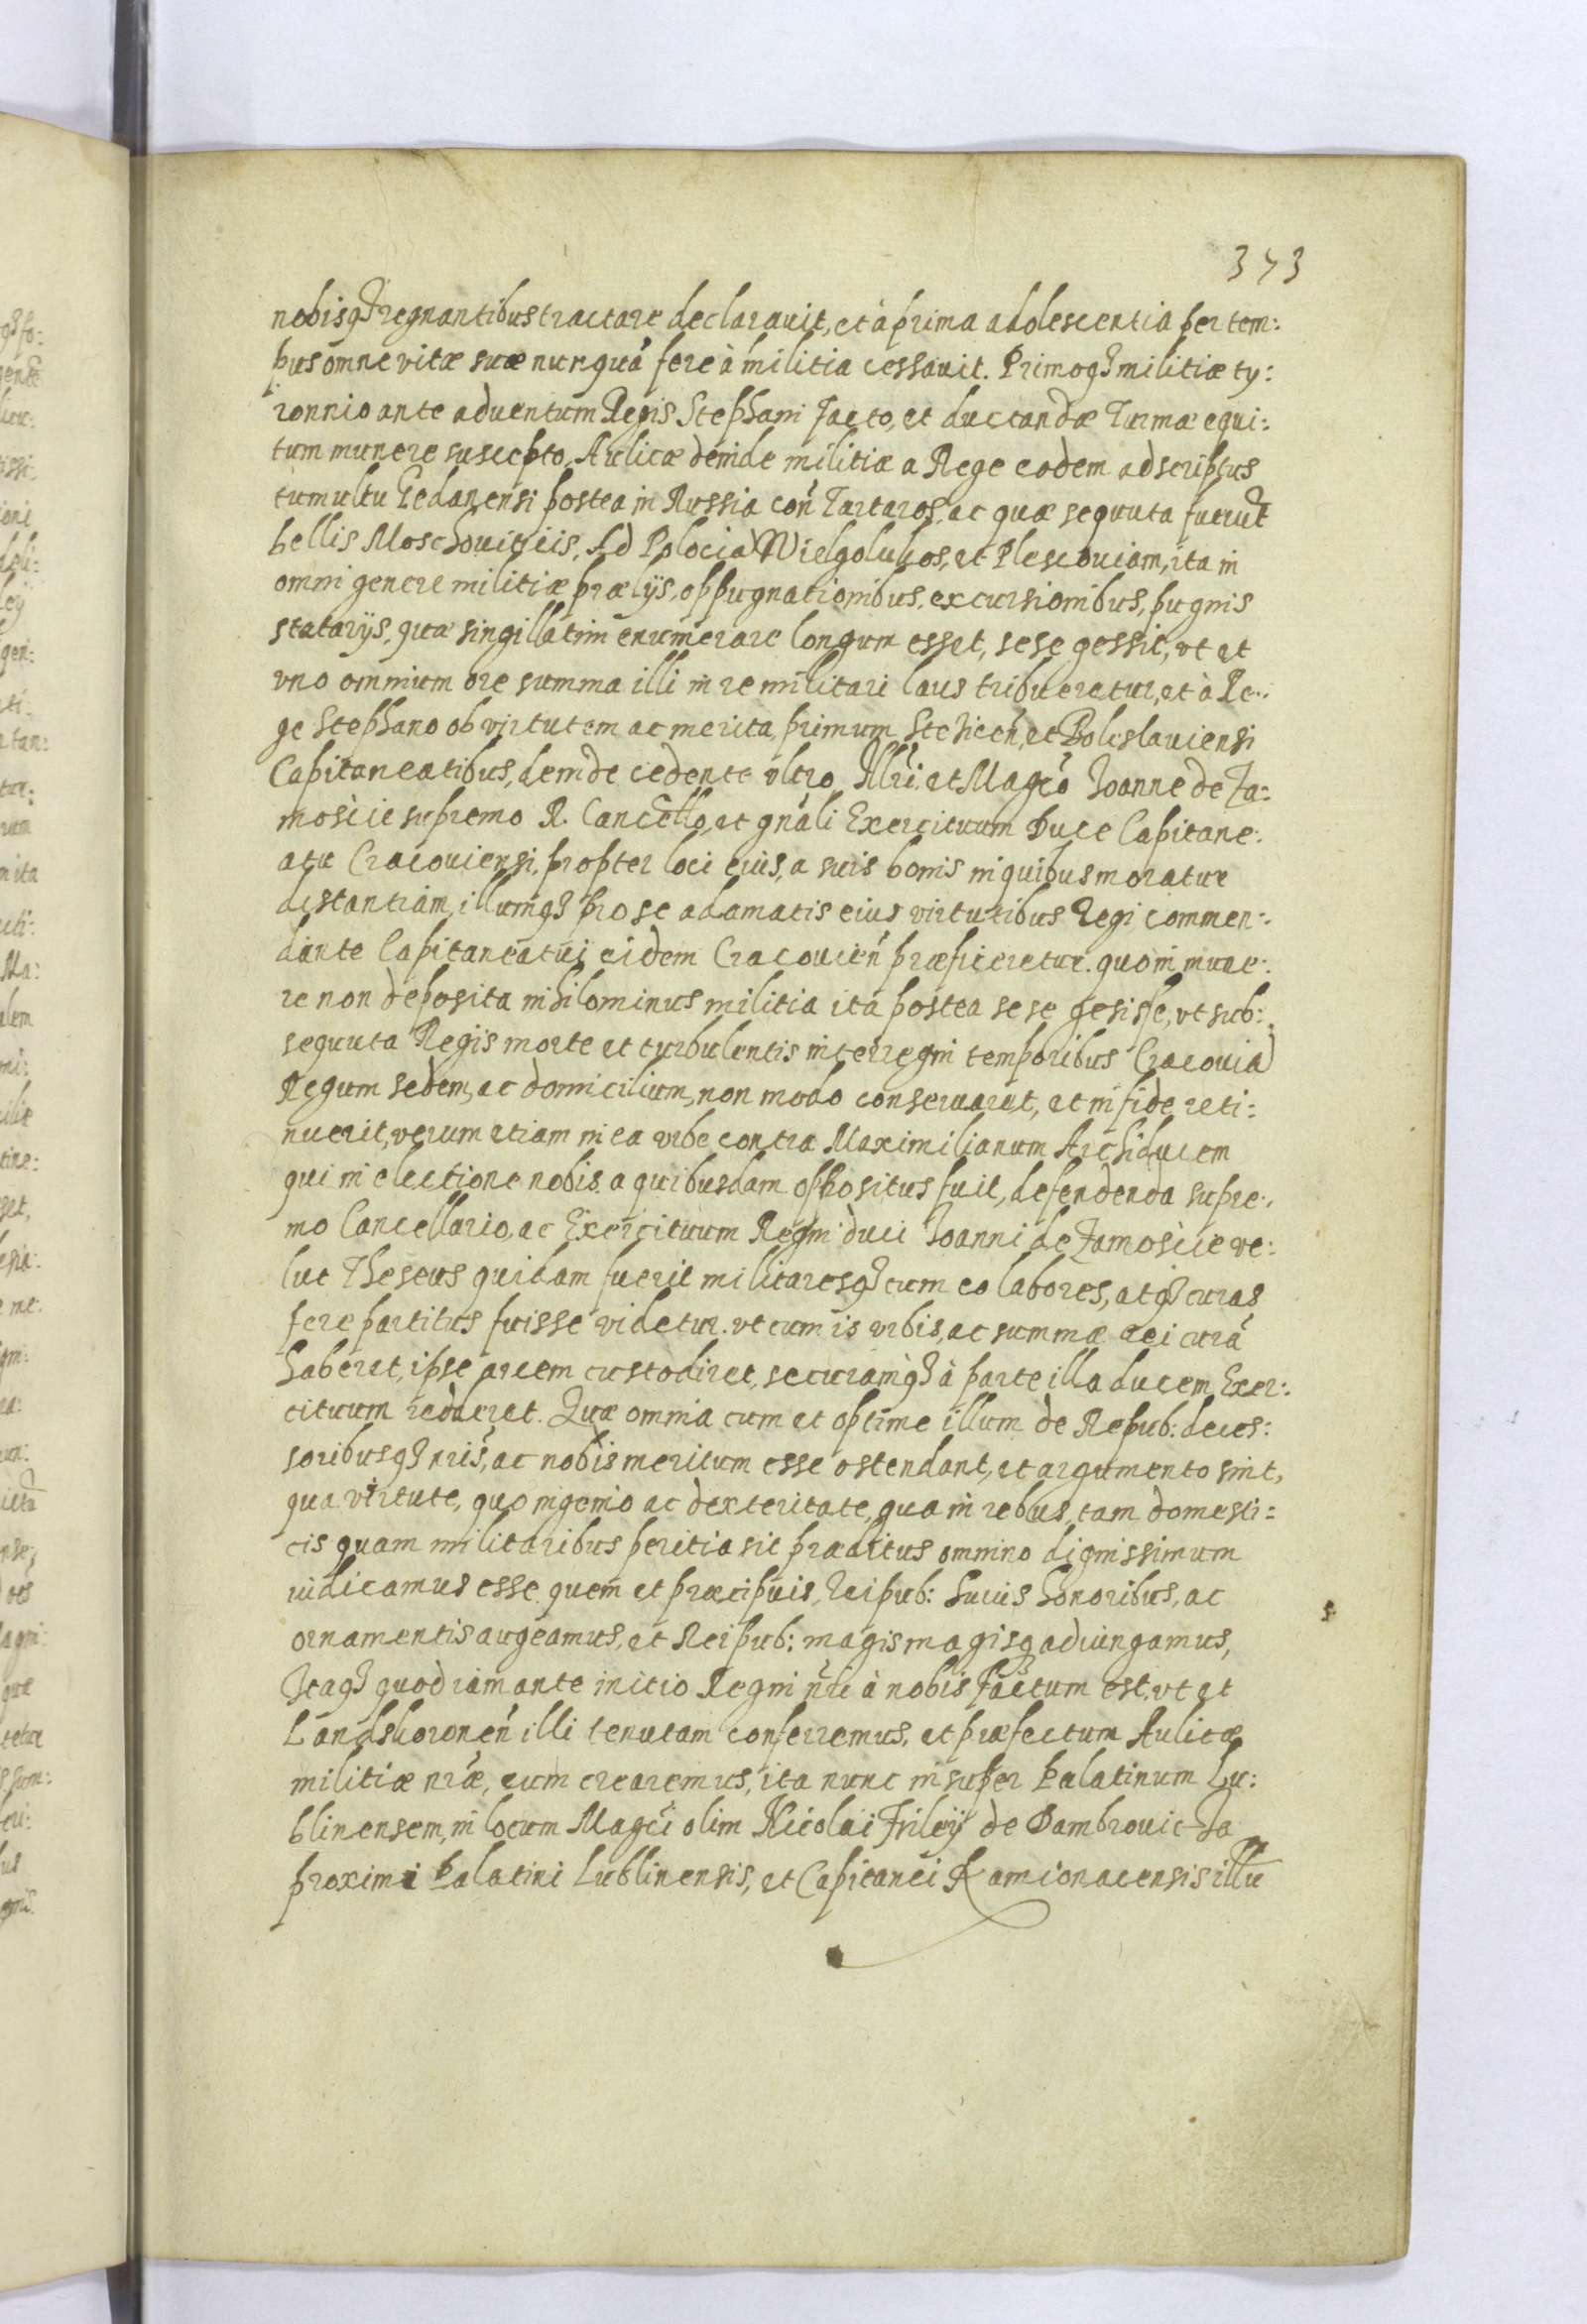 373
nobisq₃ regnantibus tractare declarauit, et à prima adolescentia per tem:
pus omne vitæ suæ nunquā fere à militia cessauit. Primoq₃ militiæ ty:
ronnio ante aduentum Regis Stephani facto, et ductandæ Turmæ equi:
tum munere suscepto, Aulicæ deinde militiæ a Rege eodem adscriptus
tumultu Gedanensi postea in Russia con̄ Tartaros, ac quæ sequuta fuerūt
bellis Moschouiticis, Ad Polociā Wielgolukos, et Plescouiam, ita in
omni genere militiæ prælijs, oppugnationibus, excursionibus, pugnis
statarijs, quæ singillatim enumerare longum esset, sese gessit, vt et
vno omnium ore summa illi in re militari laus tribueretur, et à Re:
ge Stephano ob virtutem ac merita, primum Stezicen̄, et Boleslauiensi
Capitaneatibus, deinde cedente vltro Illri: et Magco Ioanne de Za:
moscie supremo R. Cancello, et gn̄ali Exercituum Duce Capitane:
atu Cracouiensi, propter loci eius, a suis bonis in quibus moratur
distantiam, illumq₃ pro se adamatis eius virtutibus Regi commen:
dante Capitaneatui eidem Cracouien̄ præficeretur. quo in mune:
re non deposita nihilominus militia ita postea sese gesisse, vt sub:
sequuta Regis morte et turbulentis interregni temporibus Cracouiā
Regum sedem, ac domicilium, non modo conseruarit, et in fide reti:
nuerit, verum etiam in ea vrbe contra Maximilianum Archiducem
qui in electione nobis a quibusdam oppositus fuit, defendenda supre:
mo Cancellario, ac Exercituum Regni duci Ioanni de Zamoscie ve:
lut Theseus quidam fuerit militaresq₃ cum eo labores, atq₃ curas
fere partitus fuisse videtur. vt cum is vrbis, ac summæ rei curā
haberet, ipse arcem custodiret, securamq₃ à parte illa ducem Exer:
cituum redderet. Quæ omnia cum et optime illum de Repub: deces:
soribusq₃ nris̄, ac nobis meritum esse ostendant, et argumento sint,
qua virtute, quo ingenio ac dexteritate, qua in rebus, tam domesti:
cis quam militaribus peritia sit præditus omnino dignissimum
iudicamus esse quem et præcipuis, Reipub: huius honoribus, ac
ornamentis augeamus, et Reipub: magis magisq adiungamus,
Itaq₃ quod iam ante initio Regni nr̄i à nobis factum est, vt et
Landskoronen̄ illi tenutam conferremus, et præfectum Aulicæ
militiæ nræ, eum crearemus, ita nunc insuper Palatinum Lu:
blinensem, in locum Magci olim Nicolai Firleÿ de Dambrouicza
proximi Palatini Lublinensis, et Capitanei Kamionacensis illū